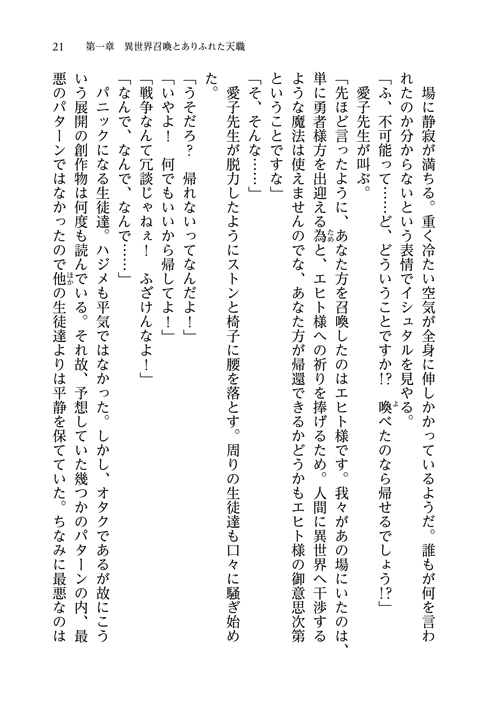 21　第一章　異世界召喚とありふれた天職
　場に静寂が満ちる。重く冷たい空気が全身に伸しかかっているようだ。誰もが何を言わ
れたのか分からないという表情でイシュタルを見やる。
「ふ、不可能って……ど、どういうことですか!?　喚べたのなら帰せるでしょう!?」
　愛子先生が叫ぶ。
「先ほど言ったように、あなた方を召喚したのはエヒト様です。我々があの場にいたのは、
単に勇者様方を出迎える為と、エヒト様への祈りを捧げるため。人間に異世界へ干渉する
ような魔法は使えませんのでな、あなた方が帰還できるかどうかもエヒト様の御意思次第
ということですな」
「そ、そんな……」
　愛子先生が脱力したようにストンと椅子に腰を落とす。周りの生徒達も口々に騒ぎ始め
た。
「うそだろ？　帰れないってなんだよ！」
「いやよ！　何でもいいから帰してよ！」
「戦争なんて冗談じゃねぇ！　ふざけんなよ！」
「なんで、なんで、なんで……」
　パニックになる生徒達。ハジメも平気ではなかった。しかし、オタクであるが故にこう
いう展開の創作物は何度も読んでいる。それ故、予想していた幾つかのパターンの内、最
悪のパターンではなかったので他の生徒達よりは平静を保てていた。ちなみに最悪なのは